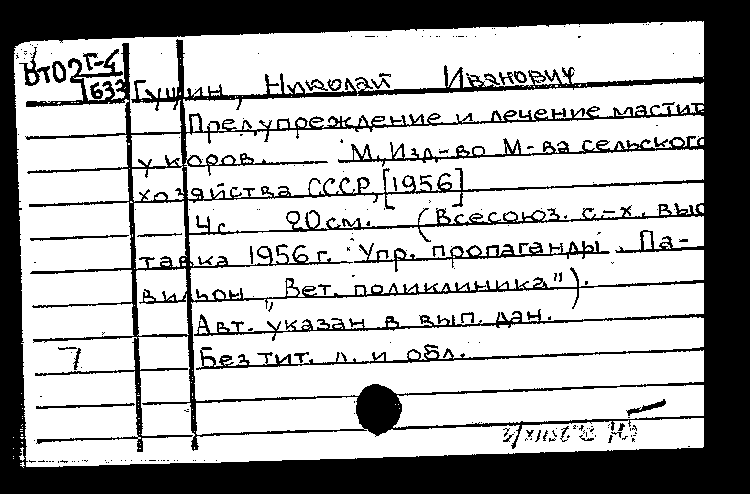 Вт02 Г-4
1633
Гущин, Николай Иванович
Предупреждение и лечение мастит
у коров. М., Изд-во М-ва сельского
хозяйства СССР, [1956]
4 с 20 см. (Всесоюз. с.-х. выс
тавка 1956 г. Упр. пропаганды. Па-
вильон „Вет. поликлиника").
Авт. указан в вып. дан.
7 Без тит. л. и обл.